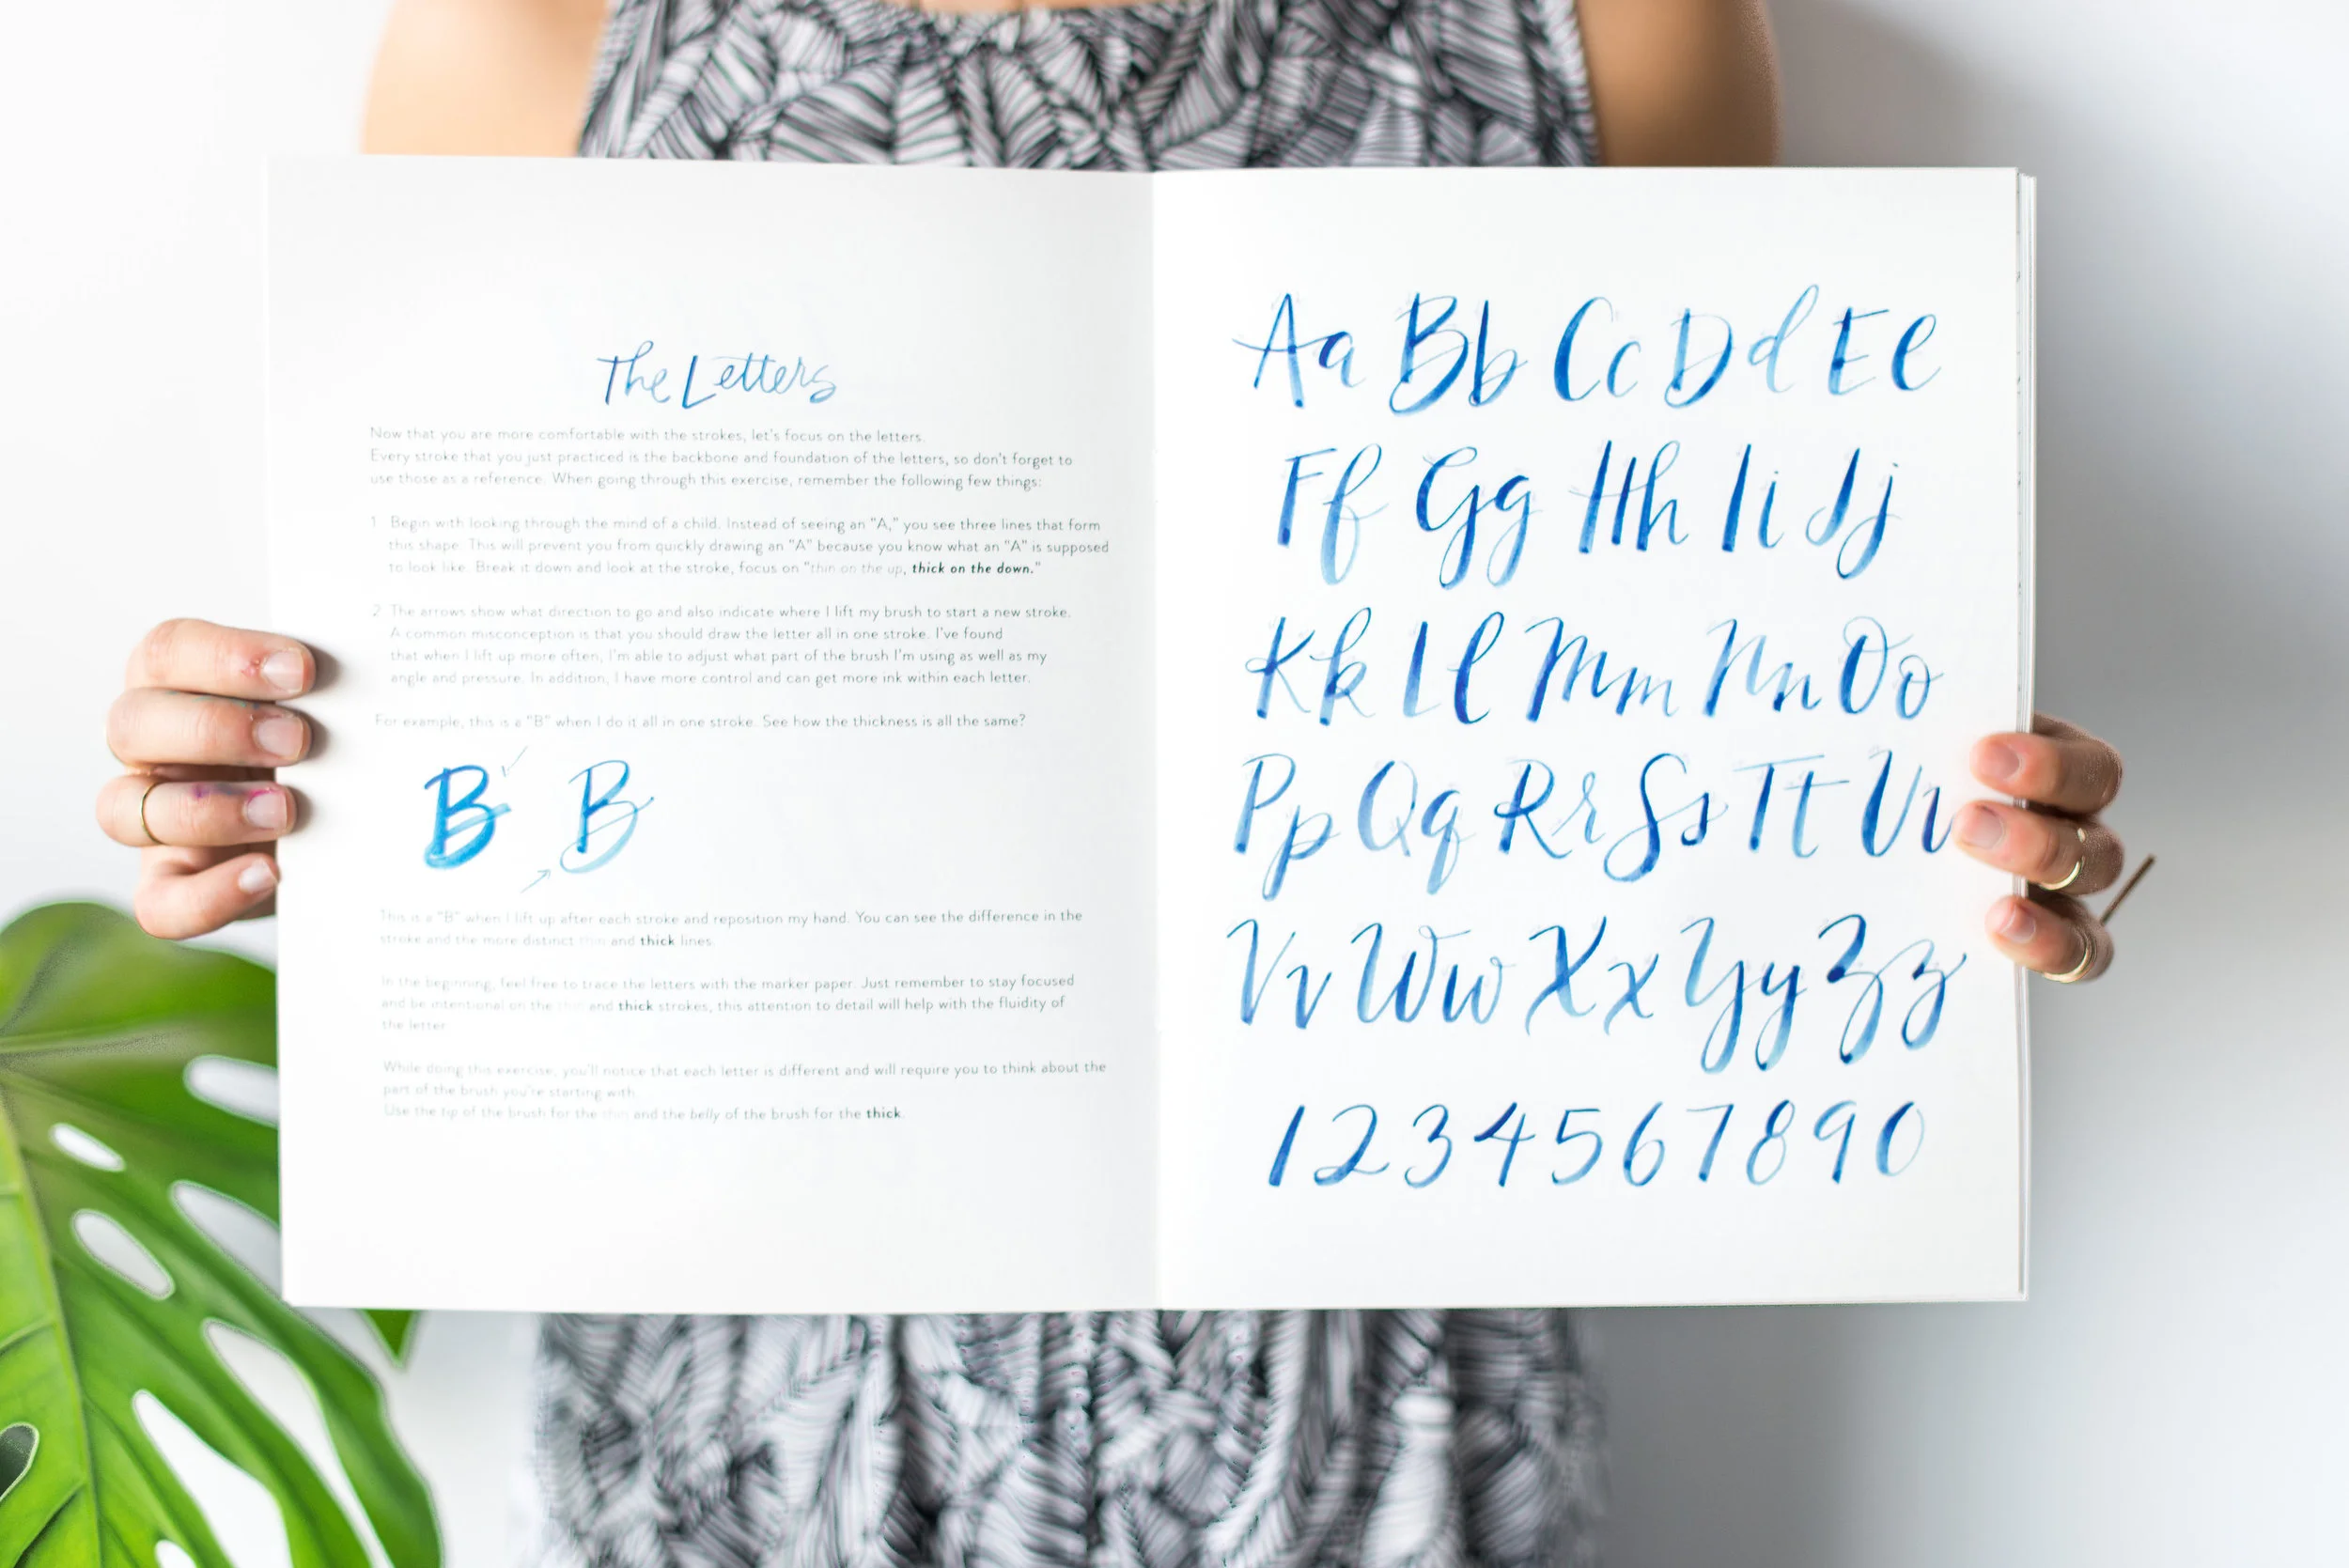 The Letters
Now that you are more comfortable with the strokes, let's focus on the letters.
Every stroke that you just practiced is the backbone and foundation of the letters, so don't forget to
use those as a reference. When going through this exercise, remember the following few things:
1 Begin with looking through the mind of a child. Instead of seeing an "A," you see three lines that form
this shape. This will prevent you from quickly drawing an "A" because you know what an "A" is supposed
to look like. Break it down and look at the stroke, focus on "thin on the up, thick on the down."
2 The arrows show what direction to go and also indicate where I lift my brush to start a new stroke.
A common misconception is that you should draw the letter all in one stroke. I've found
that when I lift up more often, I'm able to adjust what part of the brush I'm using as well as my
angle and pressure. In addition, I have more control and can get more ink within each letter.
For example, this is a "B" when I do it all in one stroke. See how the thickness is all the same?
B B
This is a "B" when I lift up after each stroke and reposition my hand. You can see the difference in the
stroke and the more distinct thin and thick lines.
In the beginning, feel free to trace the letters with the marker paper. Just remember to stay focused
and be intentional on the thin and thick strokes, this attention to detail will help with the fluidity of
the letter.
While doing this exercise, you'll notice that each letter is different and will require you to think about the
part of the brush you're starting with.
Use the tip of the brush for the thin and the belly of the brush for the thick.
Aa Bb Cc Dd Ee
Ff Gg Hh Ii Jj
Kk Ll Mm Nn Oo
Pp Qq Rr Ss Tt Uu
Vv Ww Xx Yy Zz
1234567890